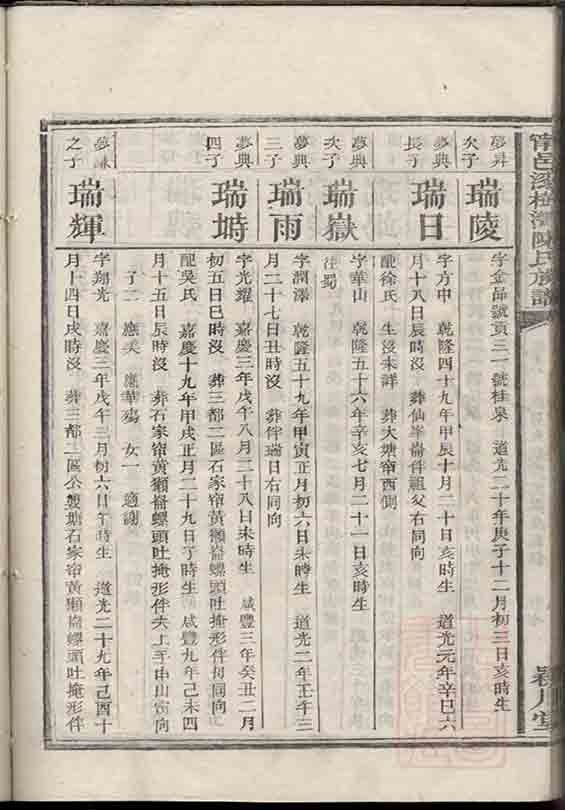 夢昇
次子
瑞陵
字金品號貢三一號桂泉　道光二十年庚子十二月初三日亥時生
夢典
長子
瑞日
字方中　乾隆四十九年甲辰十月二十日亥時生　道光元年辛巳六
月十八日辰時沒　葬仙峯崙伴祖父右同向
配徐氏　生沒未詳　葬大塘帘西側
夢典
次子
瑞嶽
字華山　乾隆五十六年辛亥七月二十一日亥時生
往蜀
夢典
三子
瑞雨
字潤澤　乾隆五十九年甲寅正月初六日未時生　道光二年壬午三
月二十七日丑時沒　葬伴瑞日右同向
夢典
四子
瑞塒
字光耀　嘉慶三年戊午八月二十八日未時生　咸豐三年癸丑二月
初五日巳時沒　葬三都二區石家帘黃獺崙螺頭吐掩形伴 同向
配吳氏　嘉慶十九年甲戌正月二十九日子時生　咸豐九年己未四
月十五日辰時沒　葬石家帘黃獺崙螺頭吐掩形伴夫上手申山寅向
子二　應美　應華殤　女一　適謝
夢
之子
瑞輝
字翔光　嘉慶三年戊午三月初六日午時生　道光二十九年己酉十
月十四日戌時沒　葬三都二區公製塘石家帘黃獺崙螺頭吐掩形伴
陳氏族譜
潁川堂